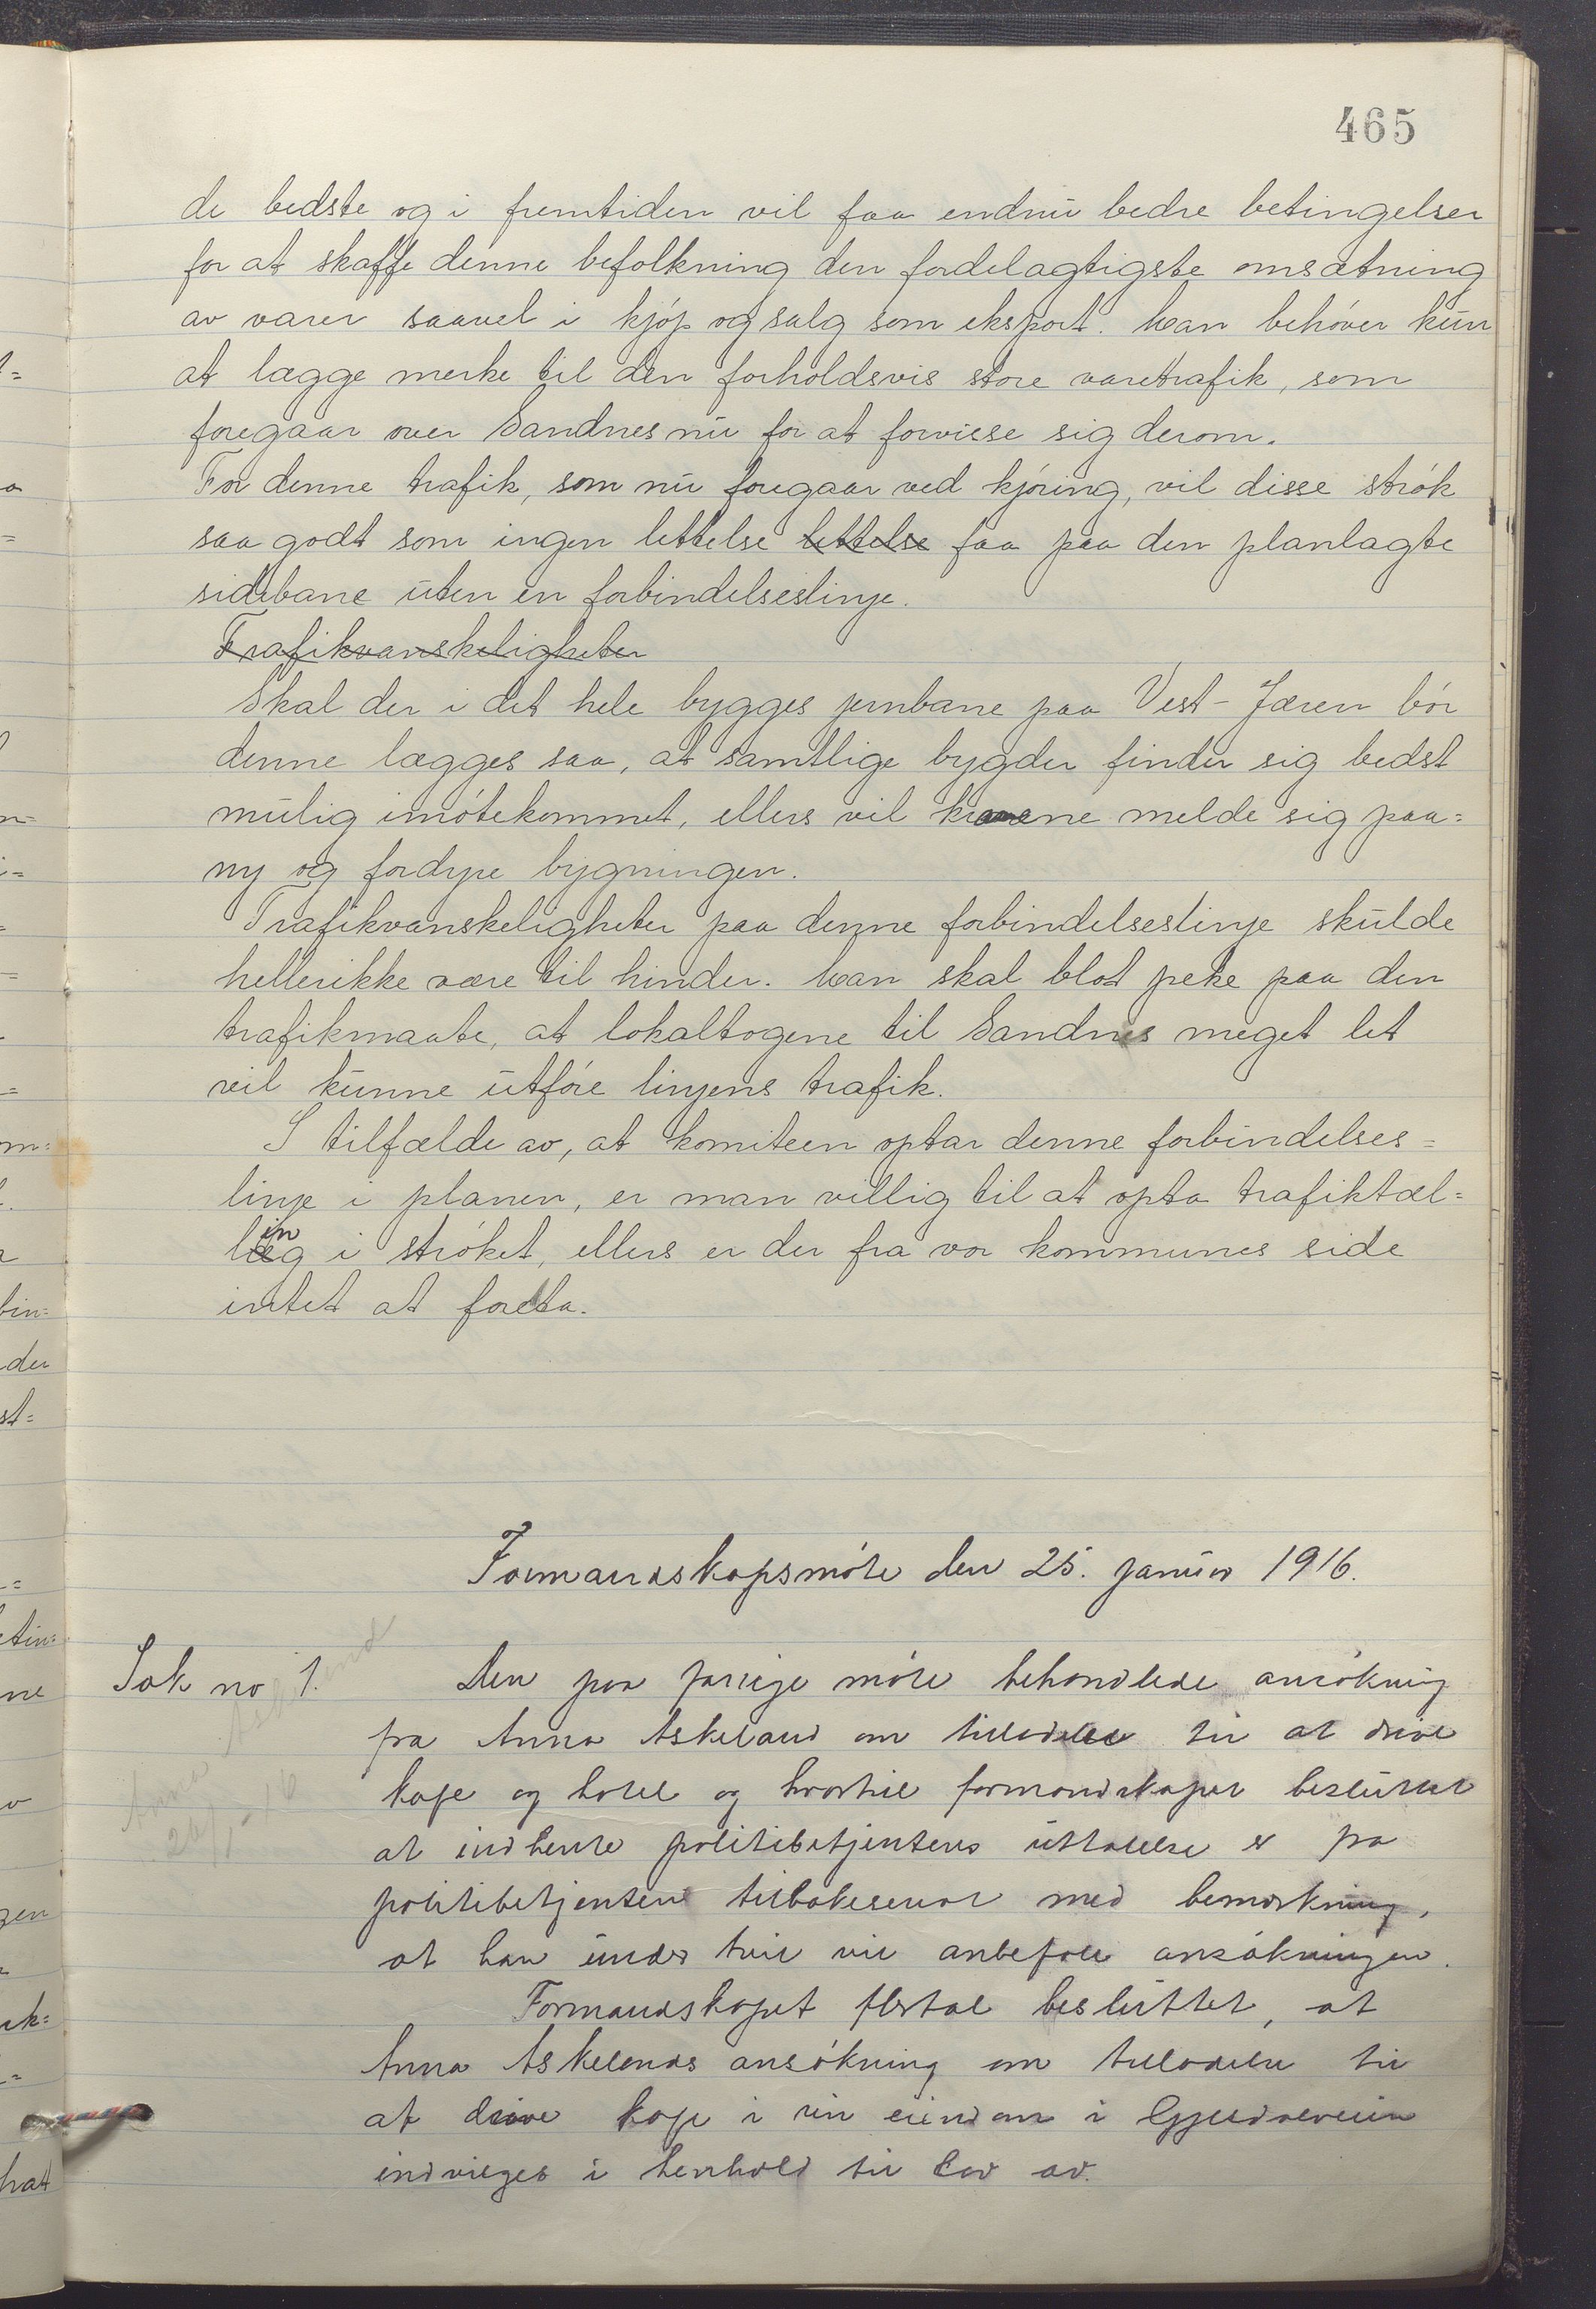 465
de bedste og i fremtiden vil faa endnu bedre betingelser
for at skaffe denne befolkning den fordelagtigste omsætning
av varer saavel i kjøp og salg som eksport. Man behøver kun
at lægge merke til den forholdsvis store varetrafik, som
foregaar over Sandnes nu for at forvisse sig derom.
For denne trafik, som nu foregaar ved kjøring, vil disse strøk
saa godt som ingen lettelse lettelse faa paa den planlagte
sidebane uten en forbindelseslinje.
Trafikvanskeligheter
Skal der i det hele bygges jernbane paa Vest-Jæren bør
denne lægges saa, at samtlige bygder finder sig bedst
mulig imøtekommet, ellers vil kravene melde sig paa=
ny og fordype bygningen.
Trafikvanskeligheter paa denne forbindelseslinje skulde
hellerikke være til hinder. Man skal blot peke paa den
trafikmaate, at lokaltogene til Sandnes meget let
vil kunne utføre linjens trafik.
I tilfælde av, at komiteen optar denne forbindelses=
linje i planen, er man villig til at opta trafiktæl=
ling i strøket, ellers er der fra vor kommunes side
intet at foreta.
Formandskapsmøte den 25. januar 1916.
Sak no 1. Den paa forrige møte behandlede ansøkning
fra Anna Askeland om tilladelse til at drive
kafe og hotel og hvortil formandskapet besluttet
at indhente politibetjentens uttalelse er fra
politibetjenten tilbakesendt med bemerkning,
at han under tvil vil anbefale ansøkningen.
Formandskapet flertal besluttet, at
Anna Askelands ansøkning om tilladelse til
at drive kafe i sin eiendom i Gjesdalveien
indvilges i henhold til lov av.
Anna
Askeland
26/1-16